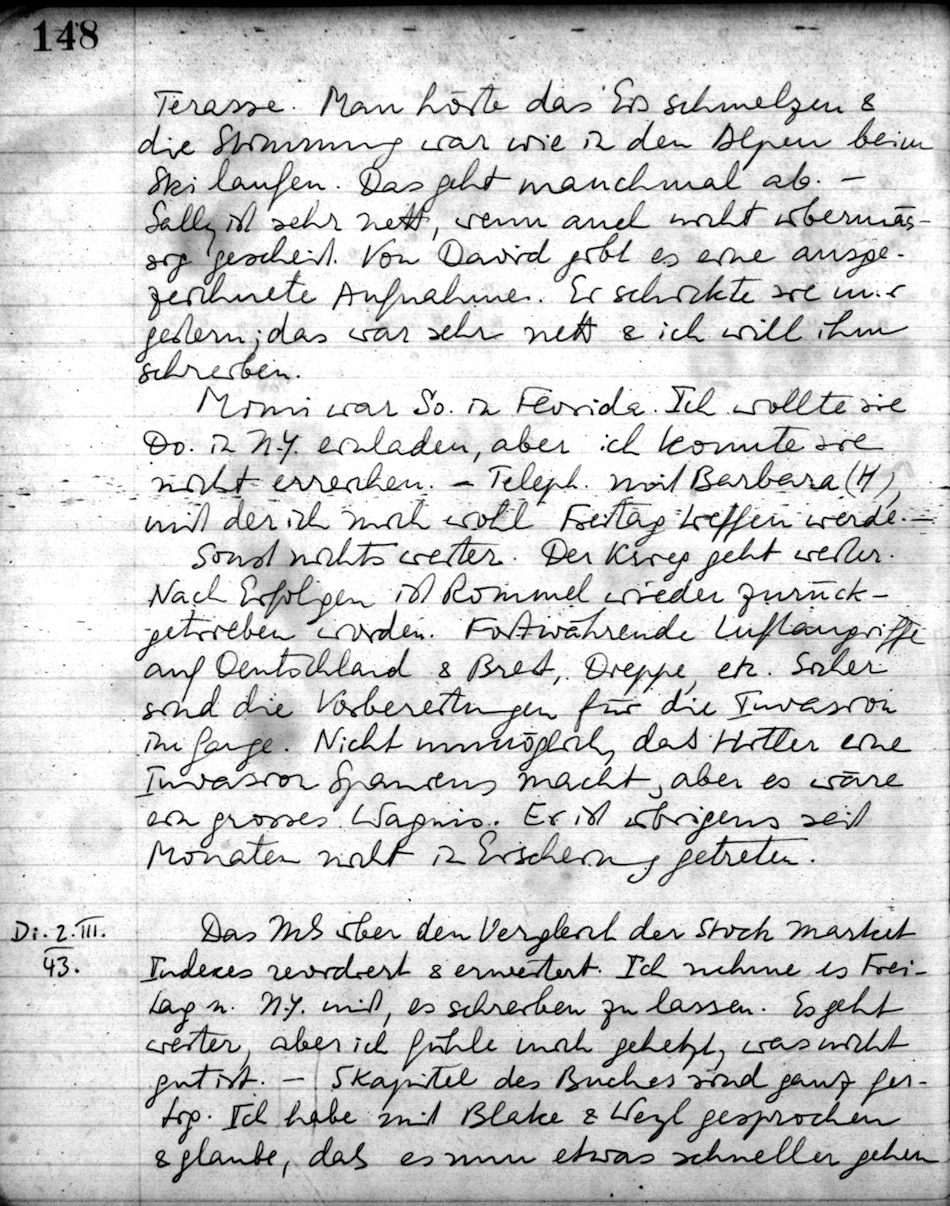 148
Terasse. Man hörte das Eis schmelzen &
die Stimmung war wie in den Alpen beim
Ski laufen. Das geht manchmal ab. –
Sally ist sehr nett, wenn auch nicht übermäs-
sig gescheit. Von David gibt es eine ausge-
zeichnete Aufnahme. Er schickte sie mir
gestern; das war sehr nett & ich will ihm
schreiben.
Mimi war So. in Florida. Ich wollte sie
Do. in N.Y. einladen, aber ich konnte sie
nicht erreichen. – Teleph. mit Barbara (H),
mit der ich mich wohl Freitag treffen werde. –
Sonst nichts weiter. Der Krieg geht weiter.
Nach Erfolgen ist Rommel wieder zurück-
getrieben worden. Fortwährende Luftangriffe
auf Deutschland & Brest, Dieppe, etc. Sicher
sind die Vorbereitungen für die Invasion
im Gange. Nicht unmöglich, dass Hitler eine
Invasion Spaniens macht, aber es wäre
ein grosses Wagnis. Er ist übrigens seit
Monaten nicht in Erscheinung getreten.
Di. 2. III.
43.
Das MS über den Vergleich der Stock market
Indexes revidiert & erweitert. Ich nehme es Frei-
tag n. N.Y. mit, es schreiben zu lassen. Es geht
weiter, aber ich fühle mich gehetzt, was nicht
gut ist. – 5 Kapitel des Buches sind ganz fer-
tig. Ich habe mit Blake & Weyl gesprochen
& glaube, dass es nun etwas schneller gehen